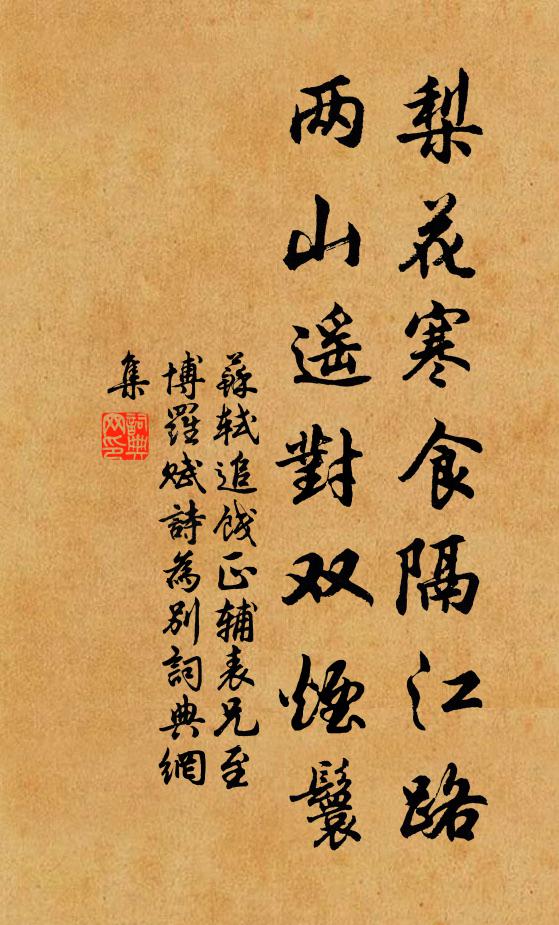 梨花寒食隔江路
两山遥對双煙鬟
蘇軾追餞正輔表兄至
博羅赋詩為别詞典網
集
詞典網印